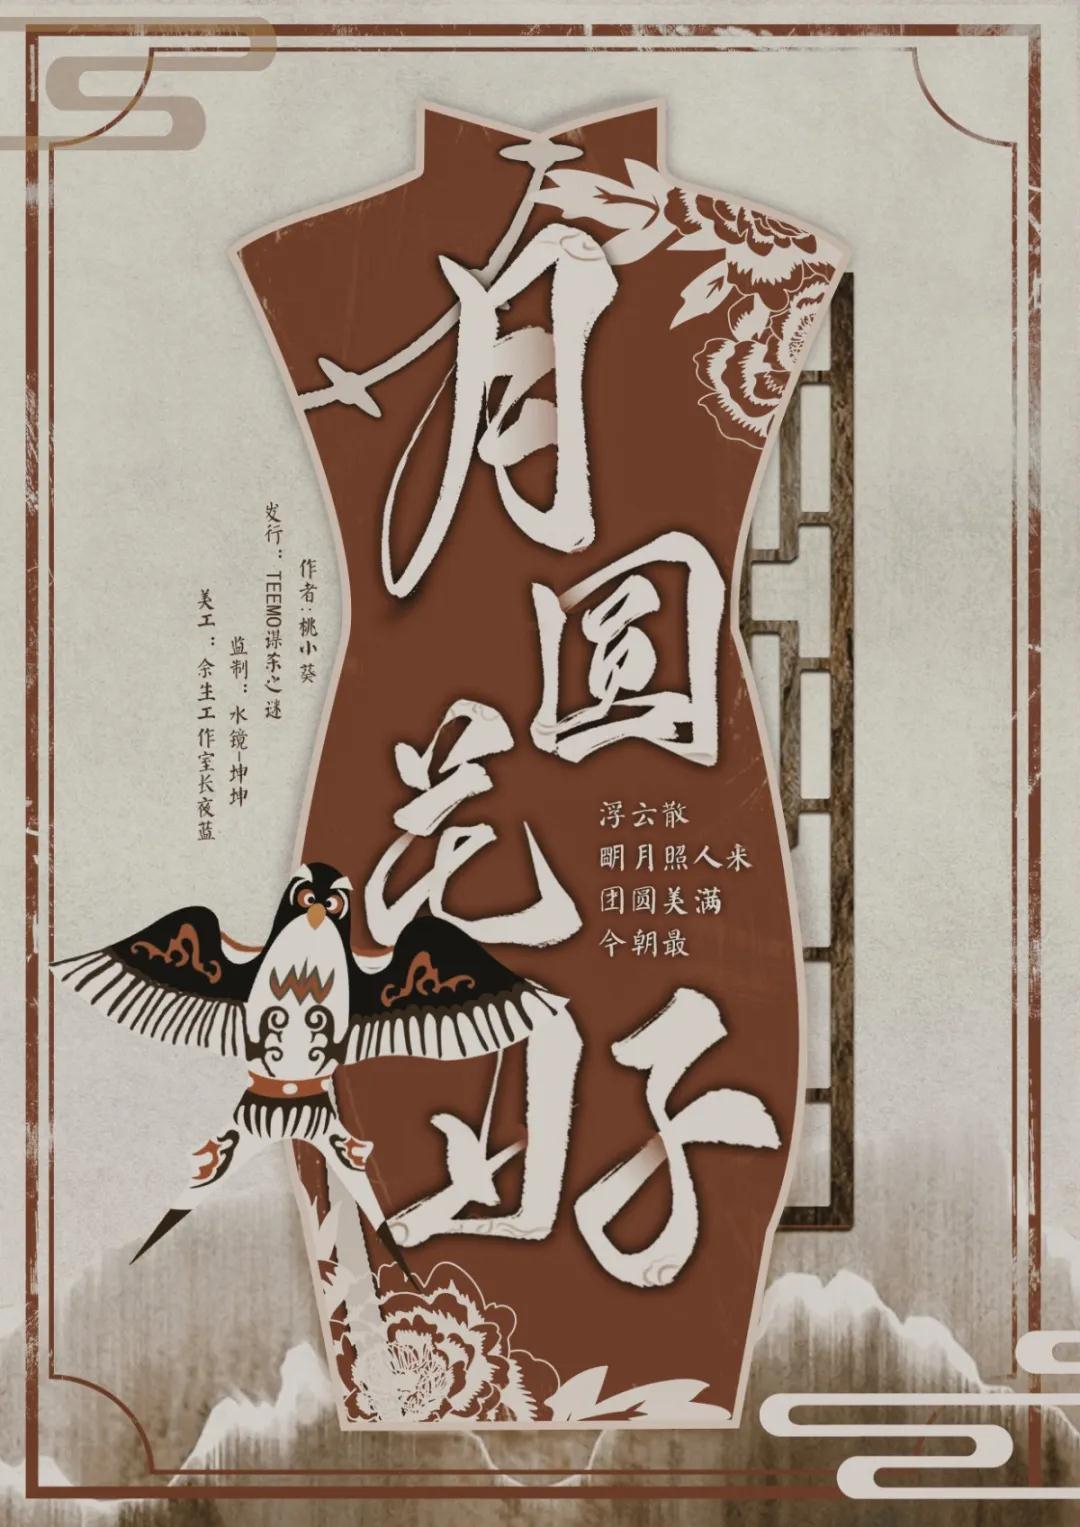 月
圆
花
好
浮云散
明月照人来
团圆美满
今朝最
作者：桃小葵
发行：TEEMO谋杀之谜
监制：水镜-坤坤
美工：余生工作室长夜蓝